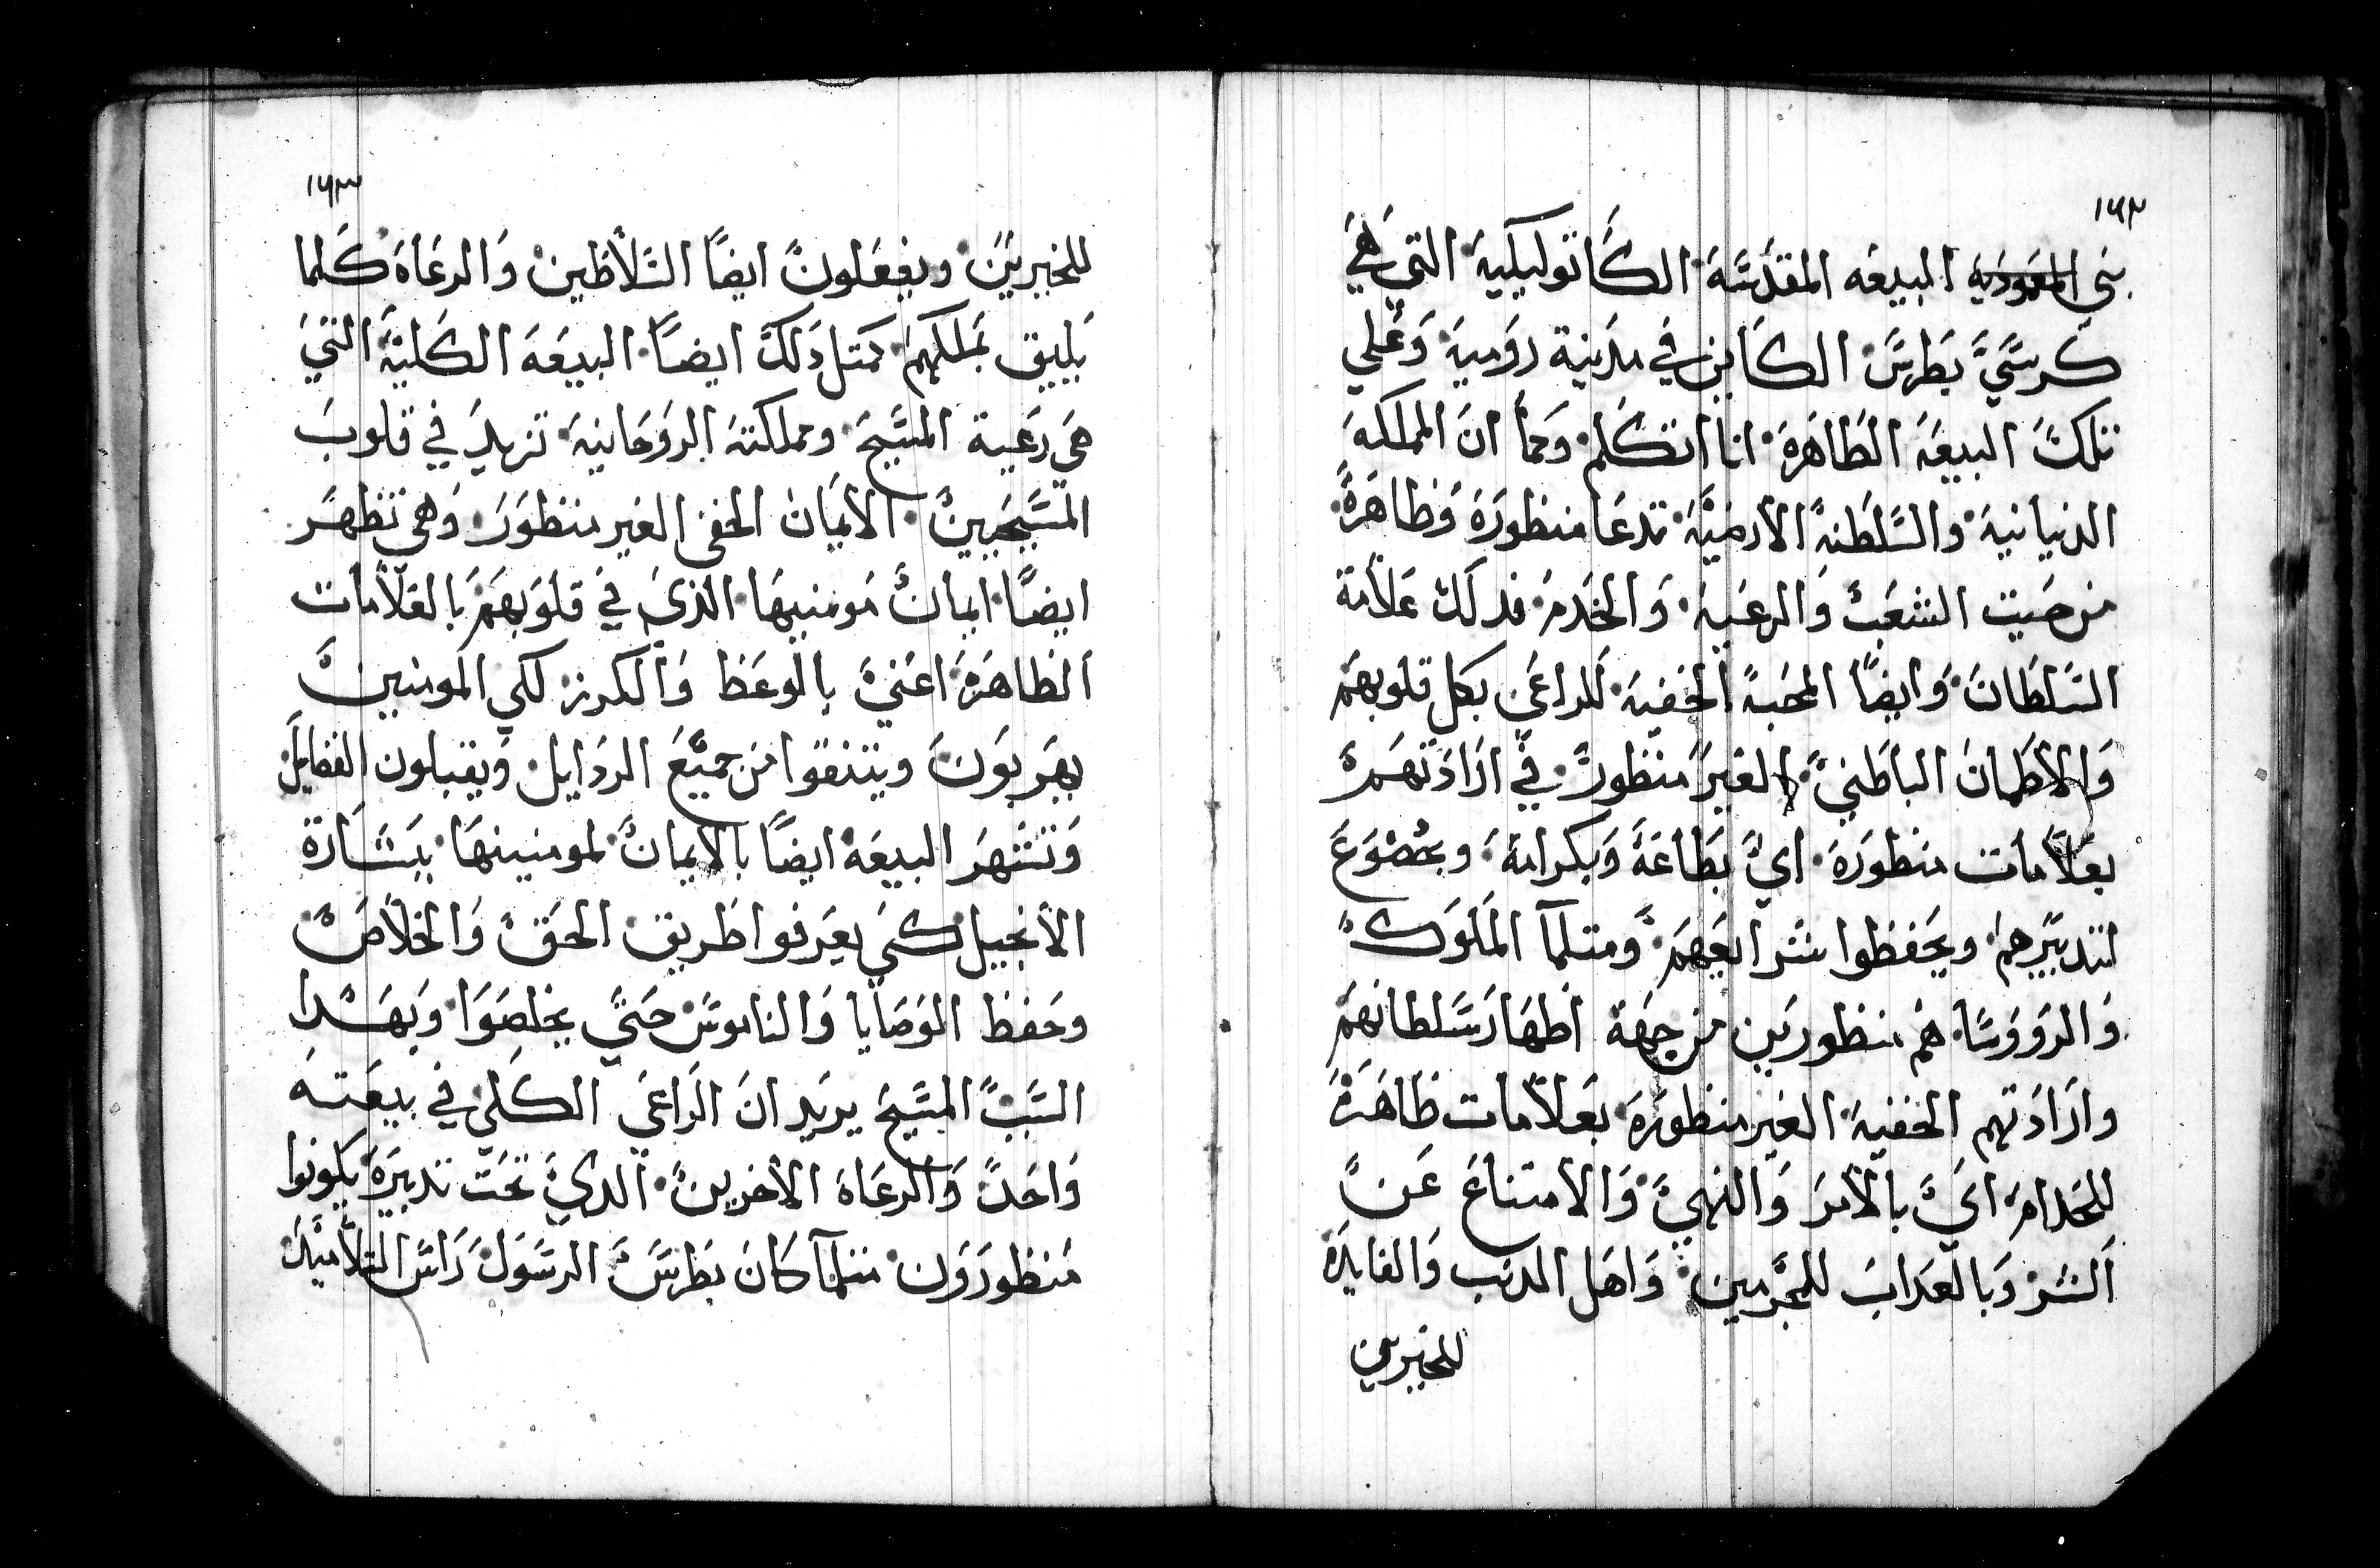 ١٦٢
بنى المعمودية البيعه المقدسة الكاتوليكية التي هي
كرسي بطرس الكاين في مدينة رومية وعلي
تلك البيعة الطاهرة انا اتكلم وكما ان المملكة
الدنيانية والسلطنة الارضية تدعا منظورة وظاهرة
من صيت الشعب والرعية والخدم فدلك علامة
السلطان وايضًا المحبة الخفية للراعي بكل قلوبهم
والاطمان الباطني الغير منظور في ارادتهم
بعلامات منظورة اي بطاعة وبكرامة وبخضوع
لتدبيرهم ويحفظوا شرايعهم ومتلما الملوك
والرووسا هم منظورين من جهة اظهار سلطانهم
وارادتهم الخفية الغير منظورة بعلامات ظاهرة
للخدام اي بالامر والنهي والامتناع عن
الشر وبالعداب للمجرمين واهل الدنب والفايدة
للخيرين
١٦٣
للخيرين ويفعلون ايضًا السلاطين والرعاة كلما
يليق بملكهم كمتل دلك ايضًا البيعة الكلية التي
هي رعية المسيح ومملكته الروحانية تزيد في قلوب
المسيحيين الايمان الخفى الغير منظور وهي تظهر
ايضًا ايمان مومنيها الذي في قلوبهم بالعلامات
الظاهرة اعني بالوعظ والكرز لكي المومنين
يهربون ويتنقوا من جميع الردايل ويقبلون الفضايل
وتشهر البيعة ايضًا بالايمان لمومنينها ببشارة
الانجيل كي يعرفوا طريق الحق والخلاص
وحفظ الوصايا والناموس حتي يخلصوا وبهدا
السبب المسيح يريد ان الراعي الكلي في بيعته
واحد والرعاة الاخرين الدي تحت تدبيره يكونوا
منظورون متلما كان بطرس الرسول راس التلاميد